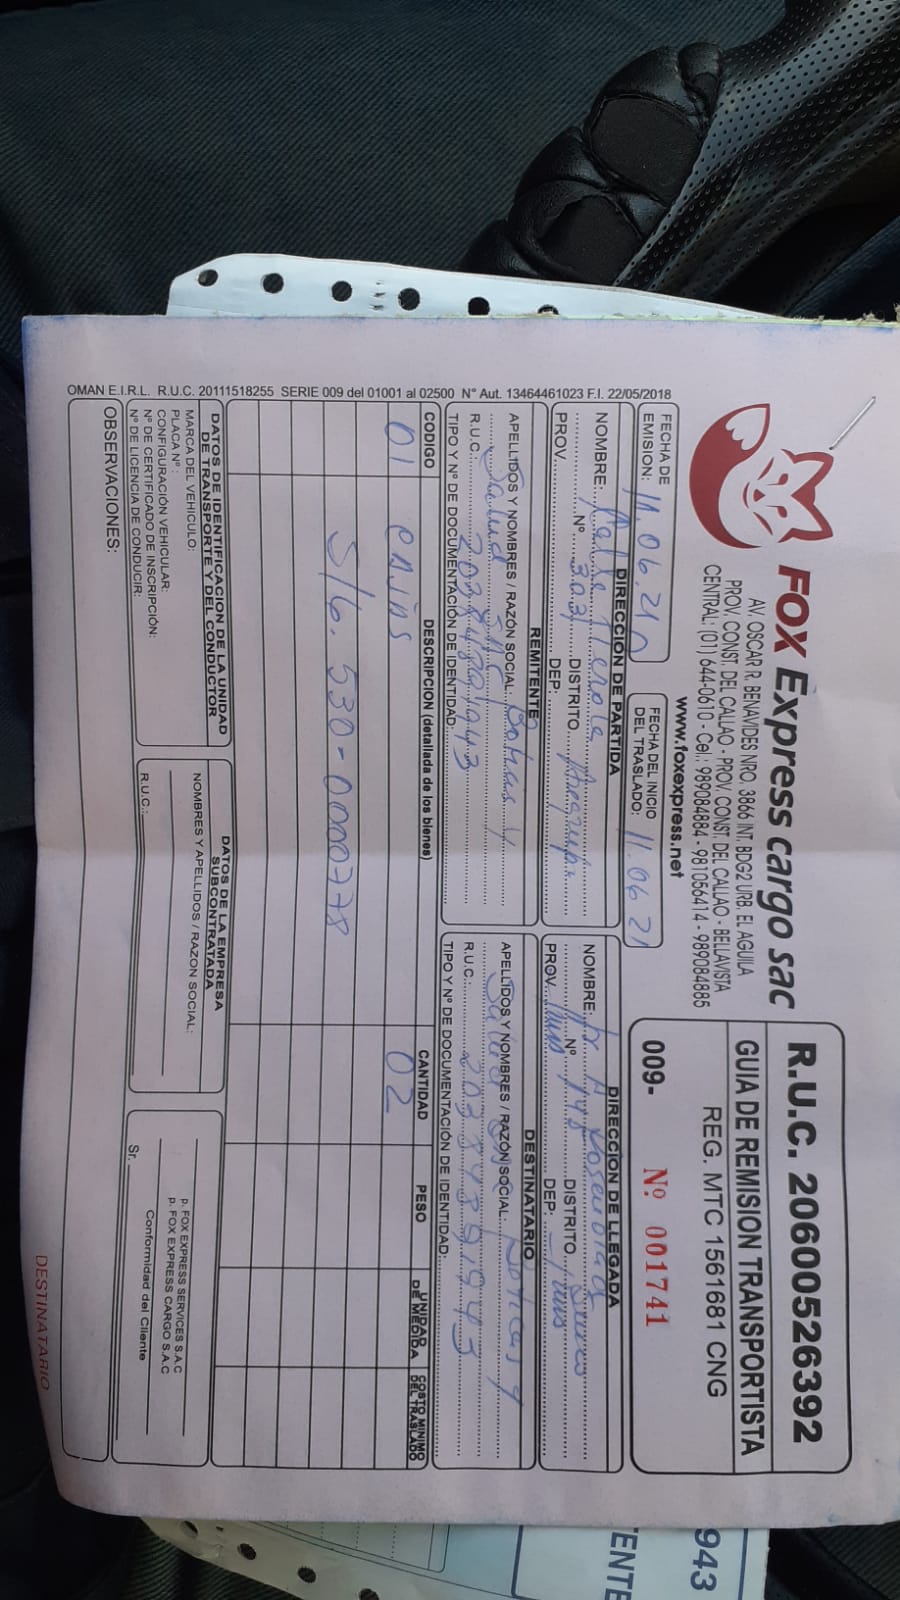 FOX Express cargo sac
AV. OSCAR R. BENAVIDES NRO. 3866 INT. BDG2 URB. EL AGUILA
PROV. CONST. DEL CALLAO - PROV. CONST. DEL CALLAO - BELLAVISTA
CENTRAL: (01) 644-0610 - Cel.: 989084884 - 981056414 - 989084885
www.foxexpress.net
R.U.C. 20600526392
GUIA DE REMISION TRANSPORTISTA
REG. MTC 1561681 CNG
009- Nº 001741
FECHA DE EMISION: 11.06.21
FECHA DEL INICIO DEL TRASLADO: 11.06.21
DIRECCION DE PARTIDA
NOMBRE: Calle
Nº 303 DISTRITO Arequipa
PROV. DEP:
DIRECCION DE LLEGADA
NOMBRE:
Nº DISTRITO
PROV. DEP:
REMITENTE
APELLIDOS Y NOMBRES / RAZÓN SOCIAL: Boticas y
Salud
R.U.C. 20384891943
TIPO Y Nº DE DOCUMENTACIÓN DE IDENTIDAD:
DESTINATARIO
APELLIDOS Y NOMBRES / RAZÓN SOCIAL: Boticas y
Salud
R.U.C. 20384891943
TIPO Y Nº DE DOCUMENTACIÓN DE IDENTIDAD:
CODIGO DESCRIPCION (detallada de los bienes) CANTIDAD PESO UNIDAD DE MEDIDA COSTO MINIMO DEL TRASLADO
01 cajas 02
S/G. 530-0000778
DATOS DE IDENTIFICACION DE LA UNIDAD
DE TRANSPORTE Y DEL CONDUCTOR
MARCA DEL VEHICULO:
PLACA Nº:
CONFIGURACIÓN VEHICULAR:
Nº DE CERTIFICADO DE INSCRIPCIÓN:
Nº DE LICENCIA DE CONDUCIR:
DATOS DE LA EMPRESA
SUBCONTRATADA
NOMBRES Y APELLIDOS / RAZON SOCIAL:
R.U.C.:
p. FOX EXPRESS SERVICES S.A.C
p. FOX EXPRESS CARGO S.A.C
Conformidad del Cliente
Sr.
OBSERVACIONES:
OMAN E.I.R.L. R.U.C. 20111518255 SERIE 009 del 01001 al 02500 Nº Aut. 13464461023 F.I. 22/05/2018
DESTINATARIO
943
TENTE